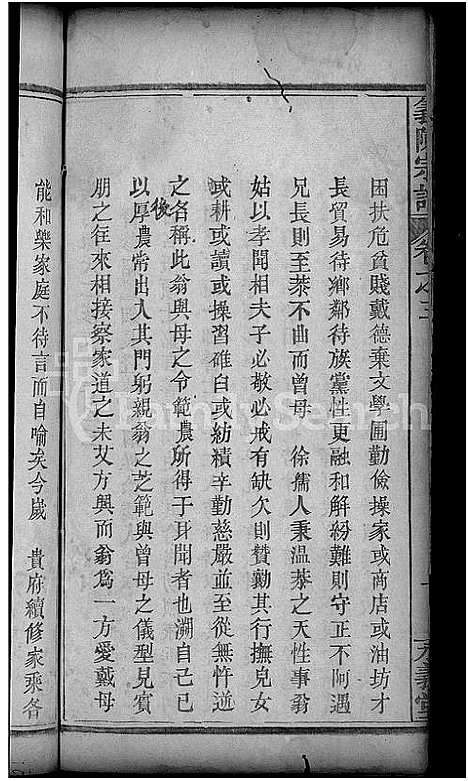 義陳宗譜
卷之三
大義堂
困扶危貧賤戴德棄文學圃勤儉操家或商店或油坊才
長貿易待鄉鄰待族黨性更融和解紛難則守正不阿遇
兄長則言至恭不曲而曾母 徐孺人秉溫恭之天性事翁
姑以孝聞相夫子必敬必戒有缺欠則贊勷其行撫兒女
或耕或讀或操習碓臼或紡績辛勤慈嚴並至從無忤逆
之名稱此翁與母之令範農所得于耳聞者也溯自己巳
後以厚農常出入其門躬親翁之芝範與曾母之儀型見賓
朋之往來相接察家道之未艾方興而翁為一方愛戴母
能和樂家庭不待言而自喻矣今歲 貴府續修家乘各
FamilySearch